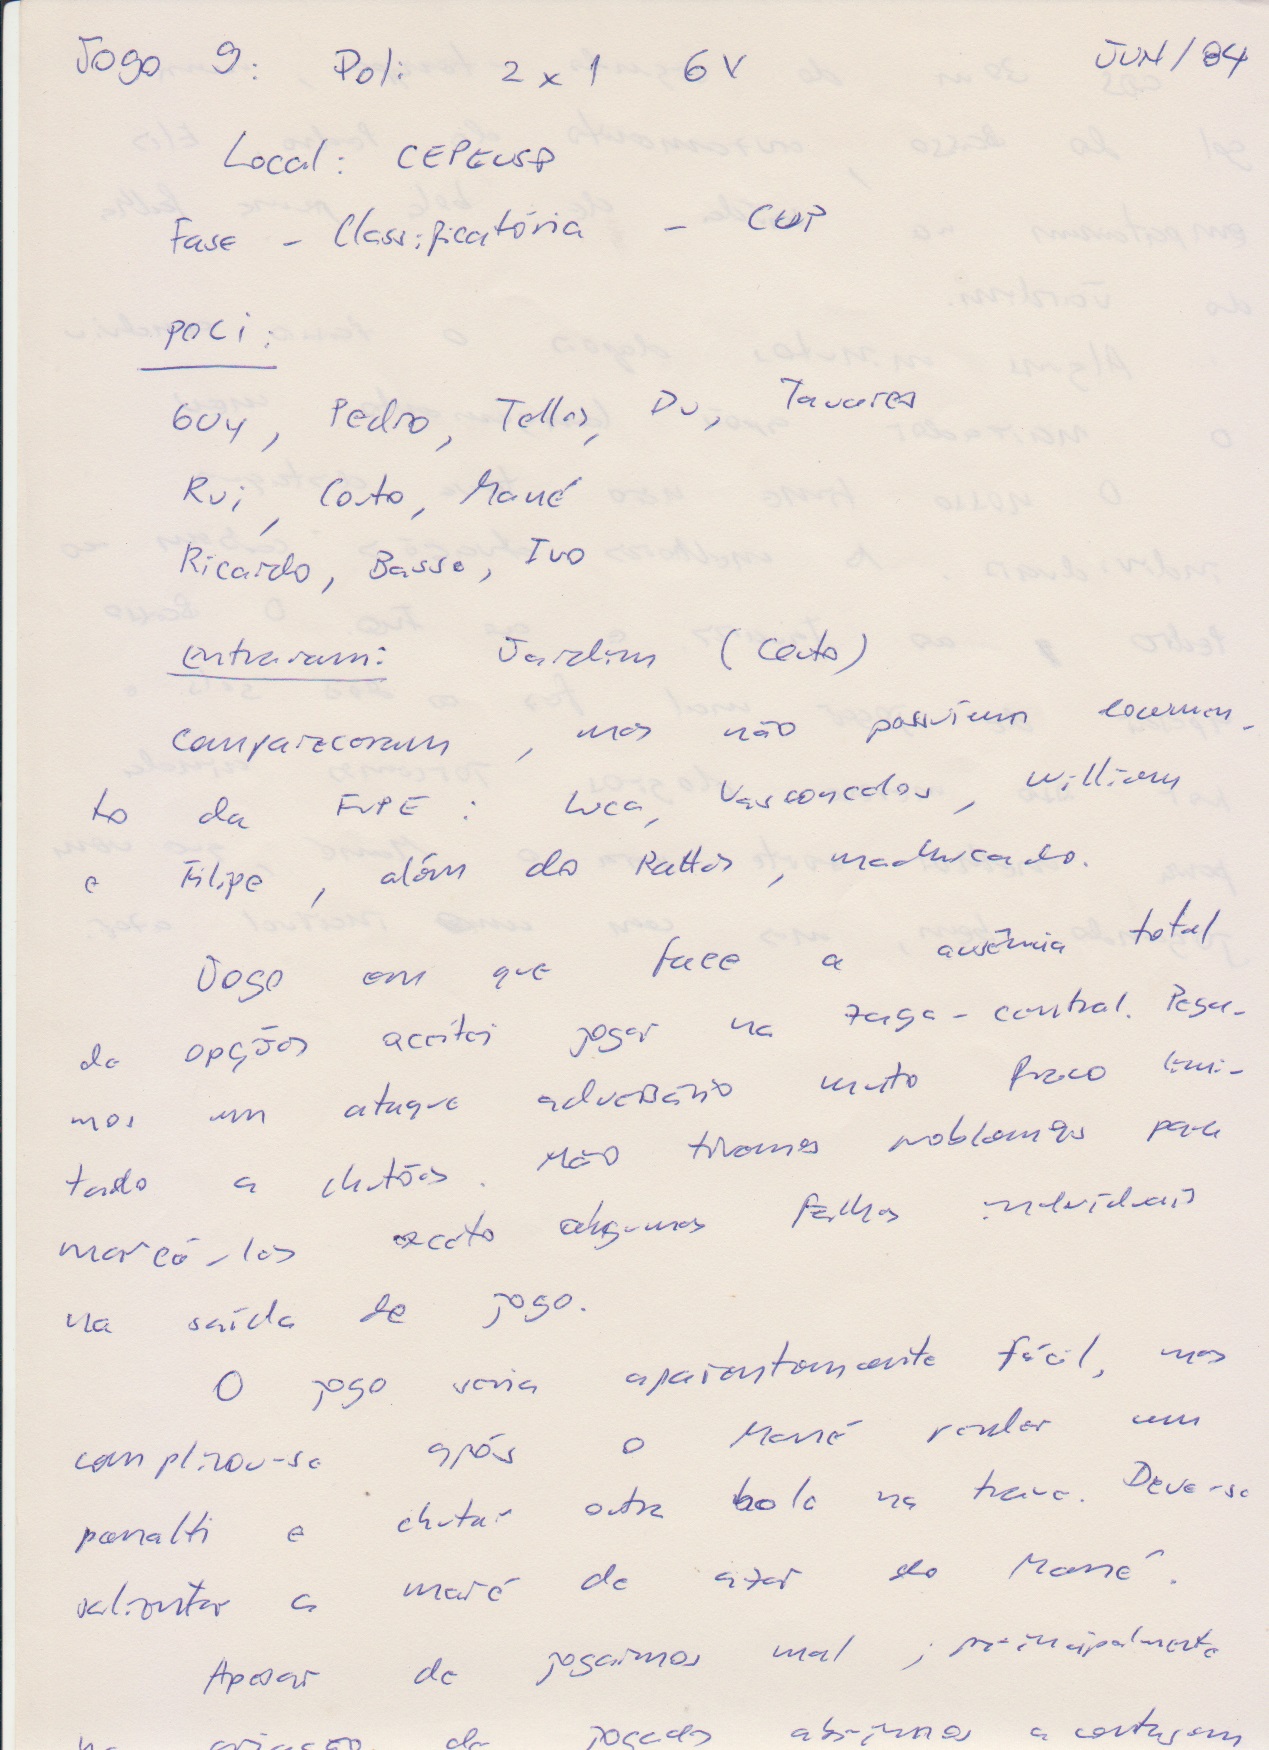 Jogo 9: Poli 2 x 1 GV JUN/84
Local: CEPEUSP
Fase - Classificatória - CUP
POLI:
GUY, Pedro, Telles, Du, Tavares
Rui, Couto, Mané
Ricardo, Basso, Ivo
entraram: Jardim (Couto)
compareceram, mas não possuíam documen-
to da FUPE: Luca, Vasconcelos, William
e Filipe, além do Rattos, machucado.
Jogo em que face a ausência total
de opções aceitei jogar na zaga-central. Pega-
mos um ataque adversário muito fraco limi-
tado a chutões. Não tivemos problemas para
marcá-los exceto algumas falhas individuais
na saída de jogo.
O jogo seria aparentemente fácil, mas
complicou-se após o Mané perder um
penalti e chutar outra bola na trave. Deve-se
salientar a maré de azar do Mané.
Apesar de jogarmos mal, principalmente
na criação de jogadas abrimos a contagem